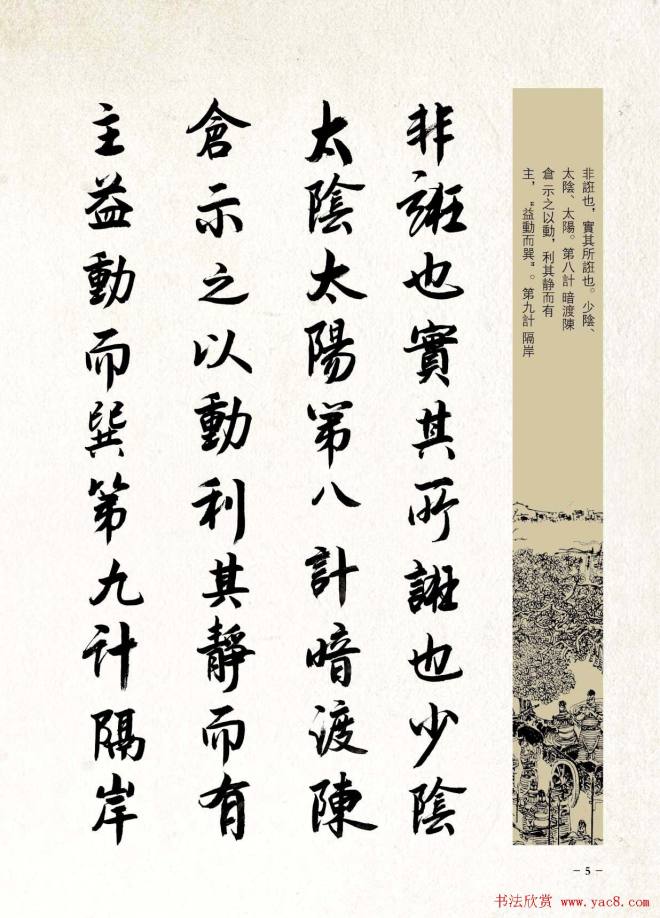 非誑也，實其所誑也。少陰、
太陰、太陽。第八計 暗渡陳
倉 示之以動，利其静而有
主，“益動而巽”。第九計 隔岸
非誑也實其所誑也少陰
太陰太陽第八計暗渡陳
倉示之以動利其靜而有
主益動而巽第九计隔岸
- 5 -
书法欣赏 www.yac8.com